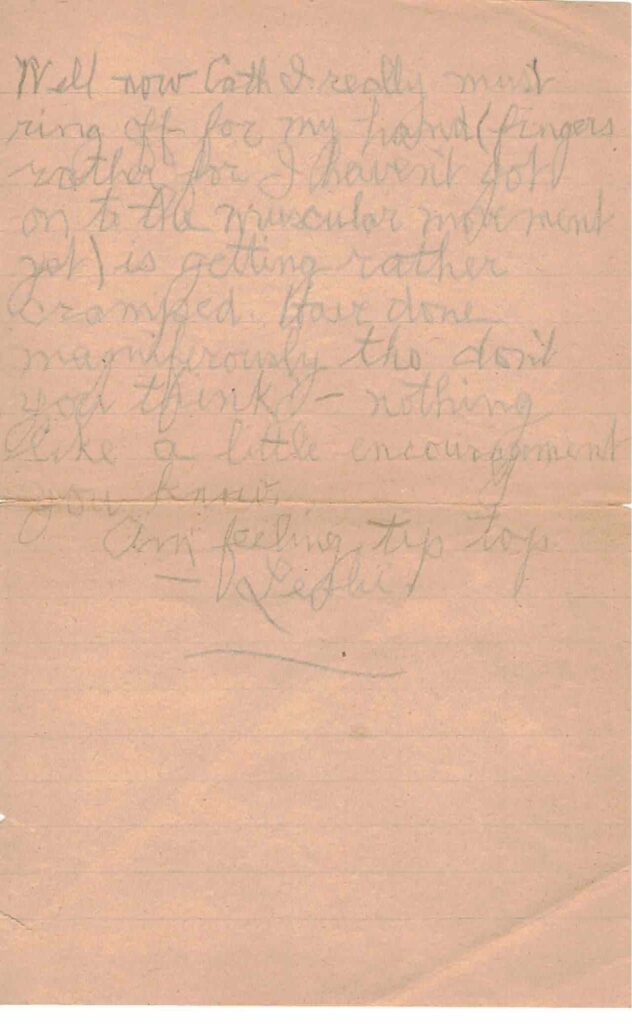 Well now Cath I really must
ring off for my hand (fingers
rather for I haven't got
on to the muscular movement
yet) is getting rather
cramped. Have done
magniferously tho don't
you think? – nothing
like a little encouragement
you know.
Am feeling tip top
– Leslie